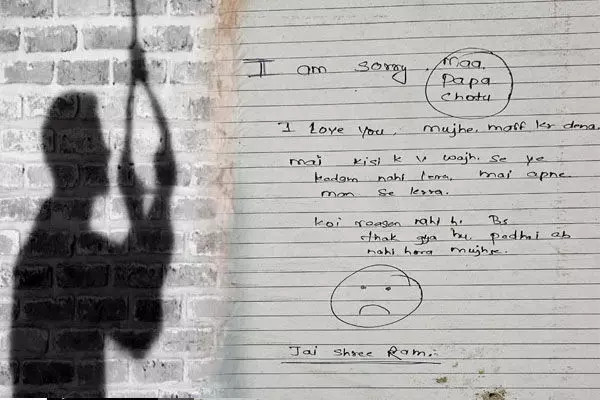 I am sorry. Maa
Papa
Chotu
I love you. mujhe. maff kr dena.
mai kisi k v wajh. se ye
kadam nahi lera. mai apne
man se lerra.
koi reason nahi h. Bs
thak gya hu. padhai ab
nahi hora mujhse.
Jai Shree Ram.